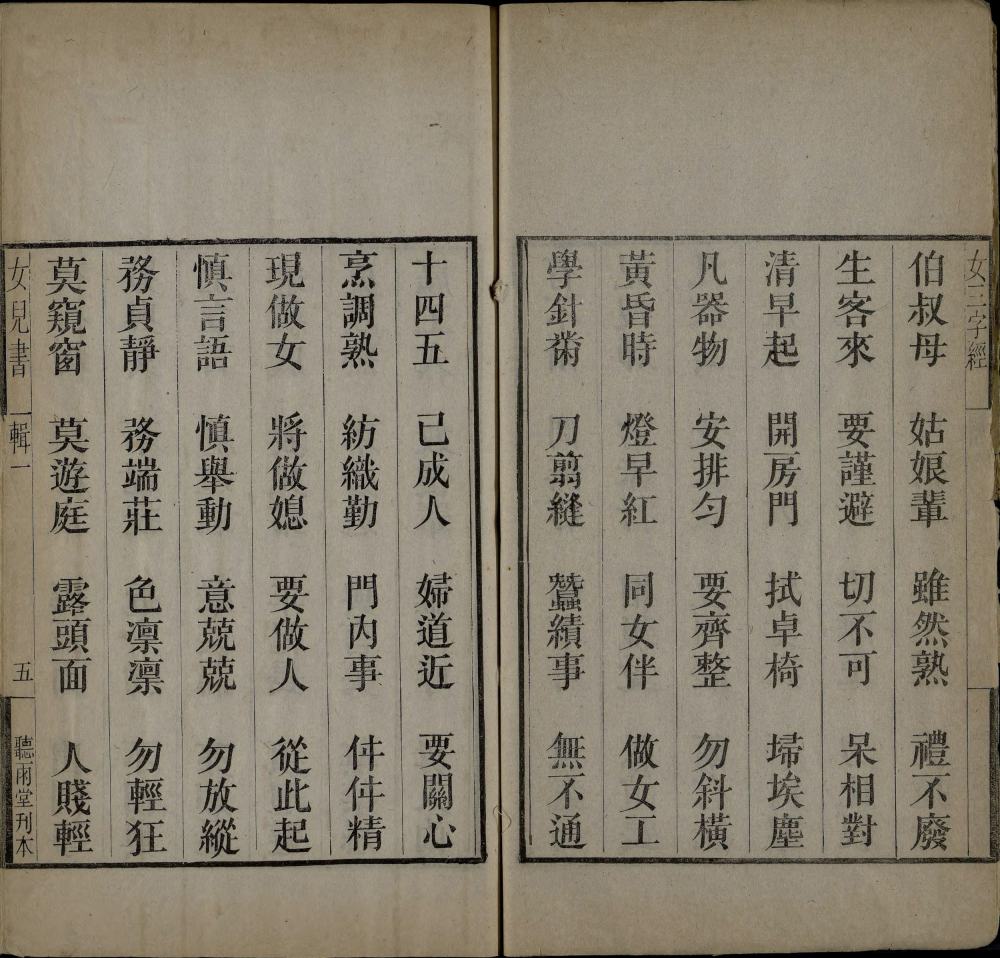 女三字經
伯叔母 姑娘輩 雖然熟 禮不廢
生客來 要謹避 切不可 呆相對
清早起 開房門 拭卓椅 埽埃塵
凡器物 安排勻 要齊整 勿斜橫
黃昏時 燈早紅 同女伴 做女工
學針黹 刀剪縫 蠶績事 無不通
十四五 已成人 婦道近 要關心
烹調熟 紡織勤 門內事 件件精
現做女 將做媳 要做人 從此起
慎言語 慎舉動 意兢兢 勿放縱
務貞靜 務端莊 色凛凛 勿輕狂
莫窺窗 莫遊庭 露頭面 人賤輕
女兒書 輯一 五 聽雨堂刊本